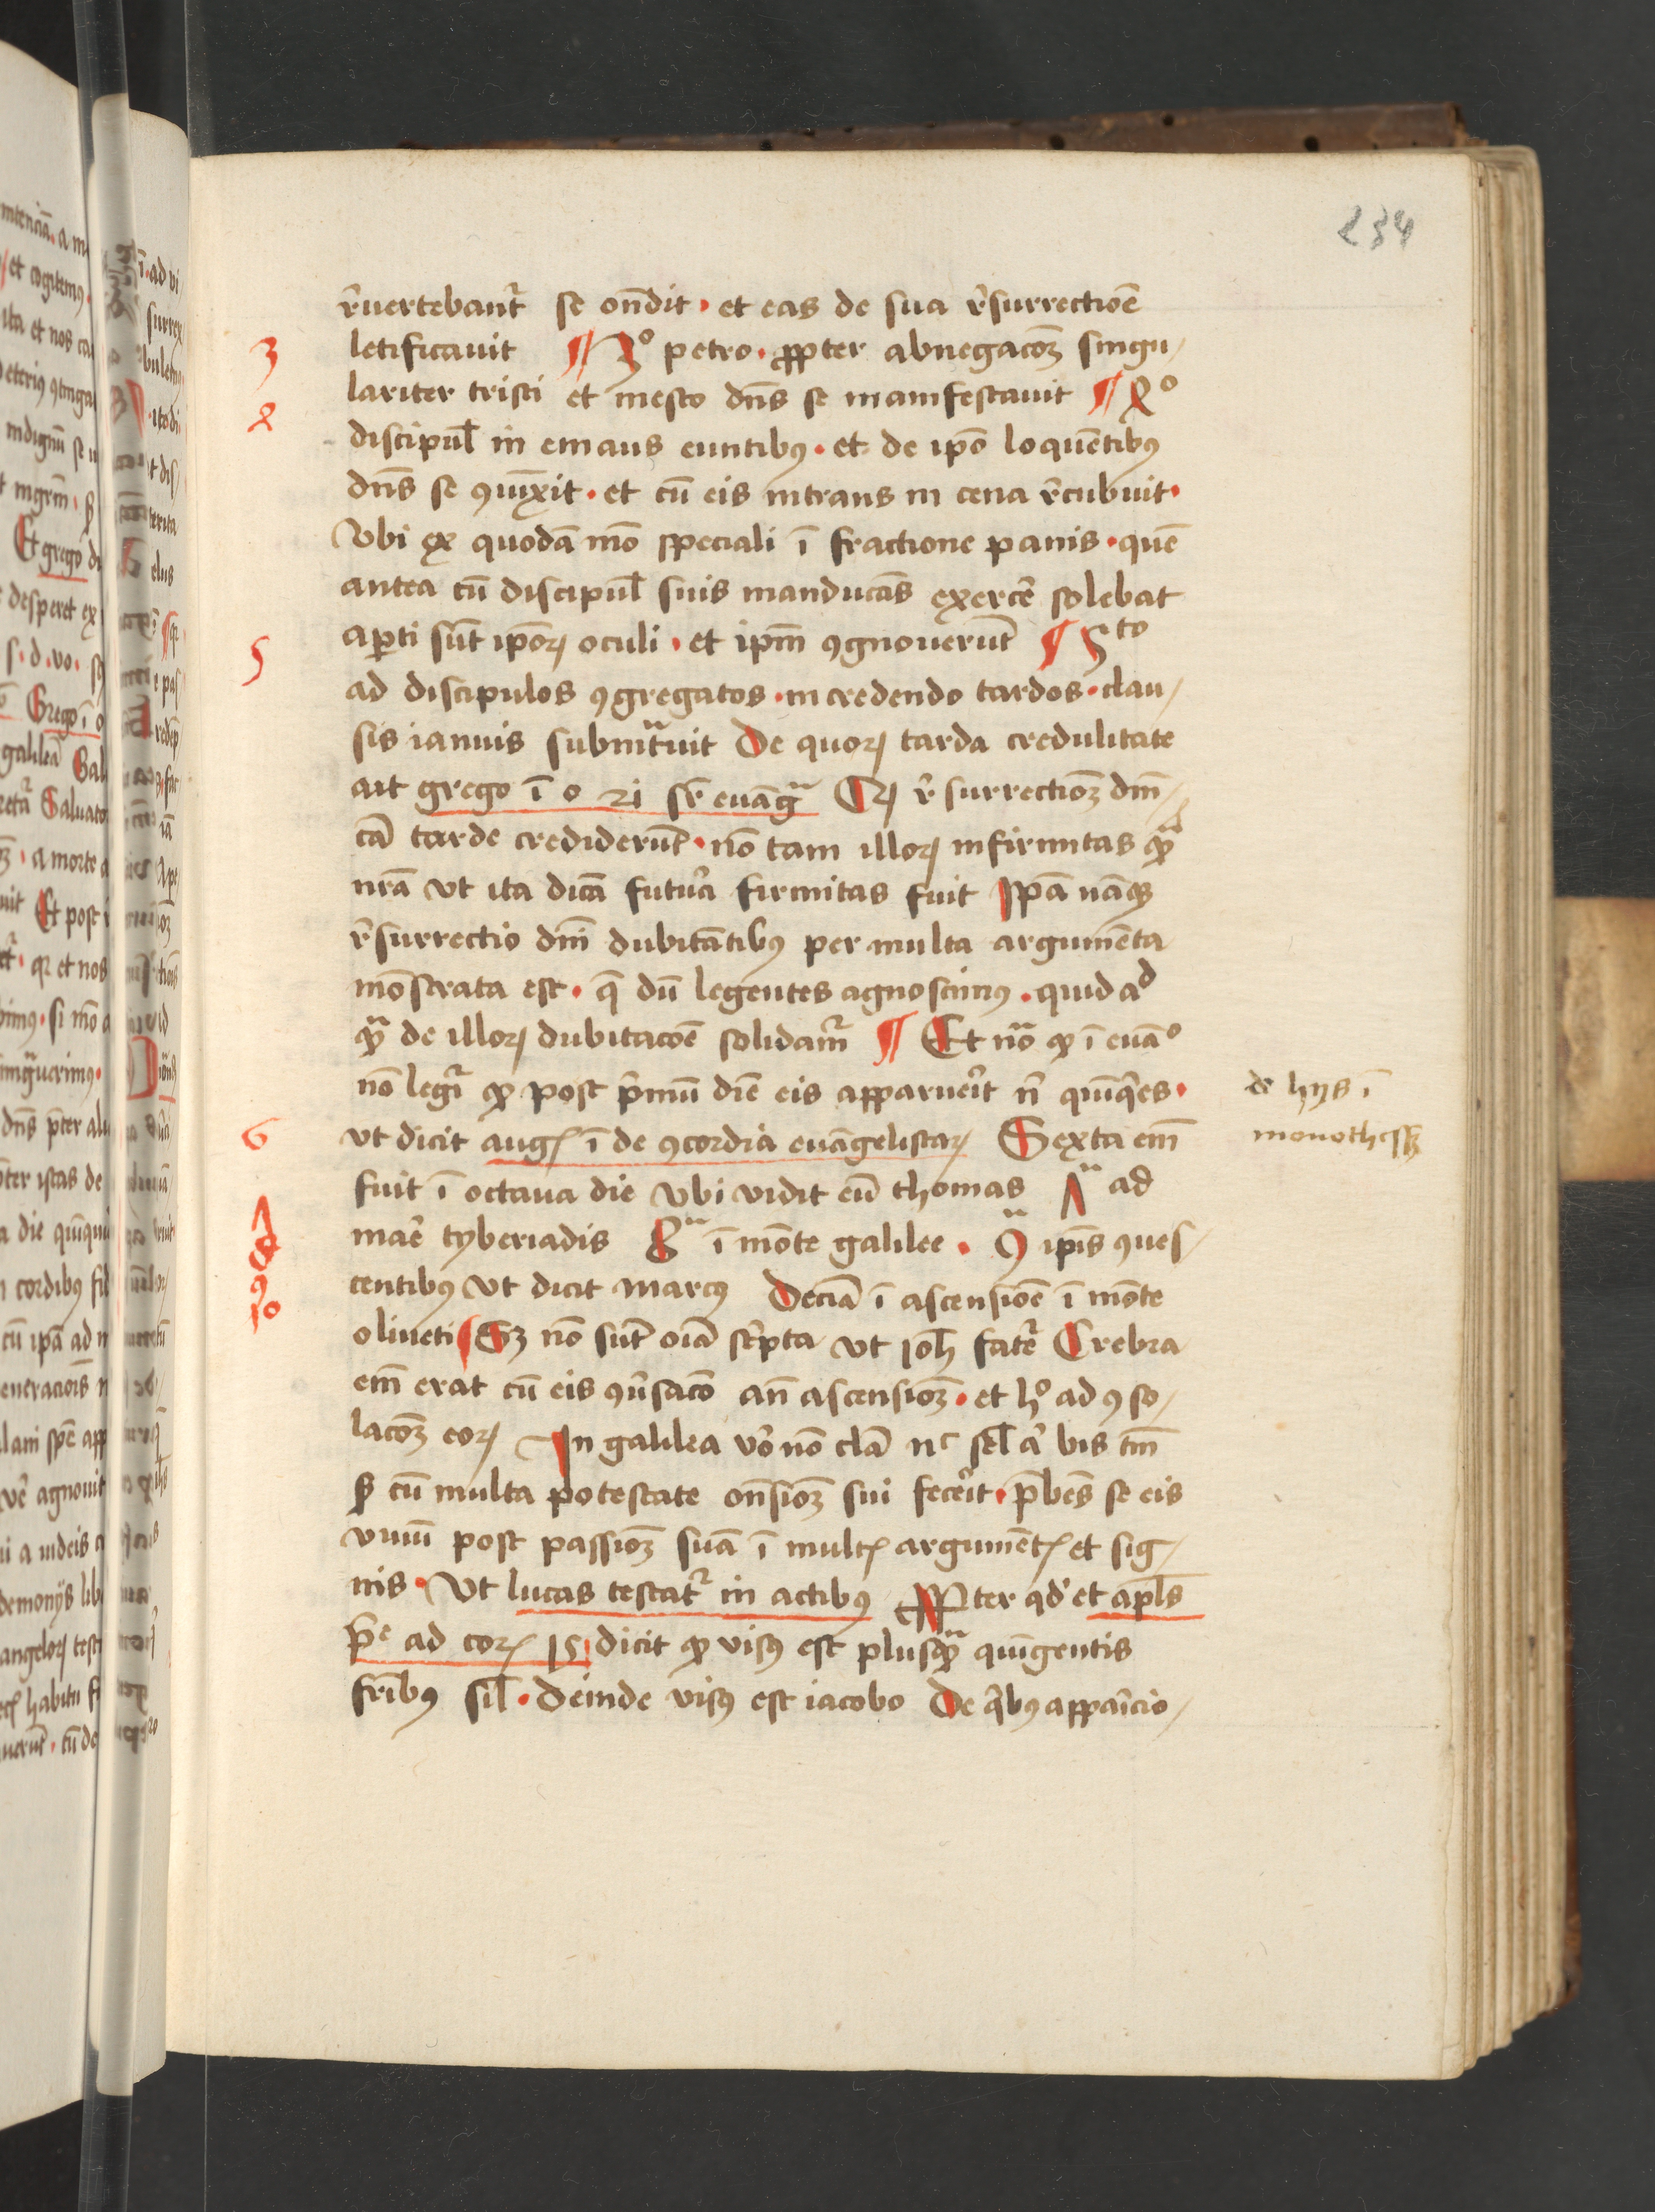 234
r̄uertebant᷑ se on̄dit · et eas de sua r̄surrectiōe
3 letificauit ¶ 3º petro · ꝓpter abnegacōꝫ singu/
lariter tristi et mesto dn̄s se manifestauit ¶ 4º
4 discipul̄ in emaus euntibꝰ · et de ip̄o loquētibꝰ
dn̄s se ꝯiūxit · et cū eis intrans in cena r̄cubuit ·
Vbi ex quodā mō speciali ī fractione panis · quē
antea cū discipul̄ suis manducās exercē solebat
aꝑti sūt ip̄oꝝ oculi · et ip̄m ꝯgnouerūt ¶ 5to
5 ad discipulos ꝯgregatos · in credendo tardos · clau/
sis ianuis subintᷓuit De quoꝝ tarda credulitate
ait grego ī o 21 sr̄ euāgᷓ Qꝝ r̄surrectioꝫ dn̄i/
cā tarde crediderūt · nō tam illoꝝ infirmitas qᷓ
nrā vt ita dicā futura firmitas fuit Ip̄a nāqꝫ
r̄surrectio dn̄i dubitātibꝰ per multa argumēta
mōstrata est · q̄ dū legentes agnoscimꝰ · quid ad
qᷓ de illoꝝ dubitacōe solidam᷑ ¶ Et nōᷓ ꝙ ī euāº
nō legi᷑ ꝙ post p̄mū diē eis apparuerit n̄ quīq̄es ·
de hijs ī
monothessꝫ
6 vt dicit augꝭ ī de ꝯcordia euāgelistaꝝ Sexta em̄
fuit ī octaua die vbi vidit eū thomas 7ᵃ ad
7 mare tyberiadis 8ᵃ ī mōte galilee · 9ᵃ ip̄is ꝯues/
8
9 centibꝰ vt dicit marcꝰ Deciā ī ascensiōe ī mōte
10 oliueti ¶ Sꝫ nō sūt oīa scͥpta vt ioh̄ fatet᷑ Crebra
em̄ erat cū eis ꝯūsacō an̄ ascensioꝫ · et hº ad ꝯso/
lacōꝫ eoꝝ In galilea vō nō clā nͨ sel̄ aͭ bis tm̄
sꝫ cū multa potestate on̄sioꝫ sui fecerit · p̄bēs se eis
viuū post passioꝫ suā ī multꝭ argumētꝭ et sig/
nis · Vt lucas testat᷑ in actibꝰ Ꝓpter qd̄ et apl̄s
p̄ᵉ ad corꝭ 15 dicit ꝙ visꝰ est plusqᷓ quīgentis
fr̄ibꝰ sil̄ · deinde visꝰ est iacobo De qͥbꝰ appaicio/